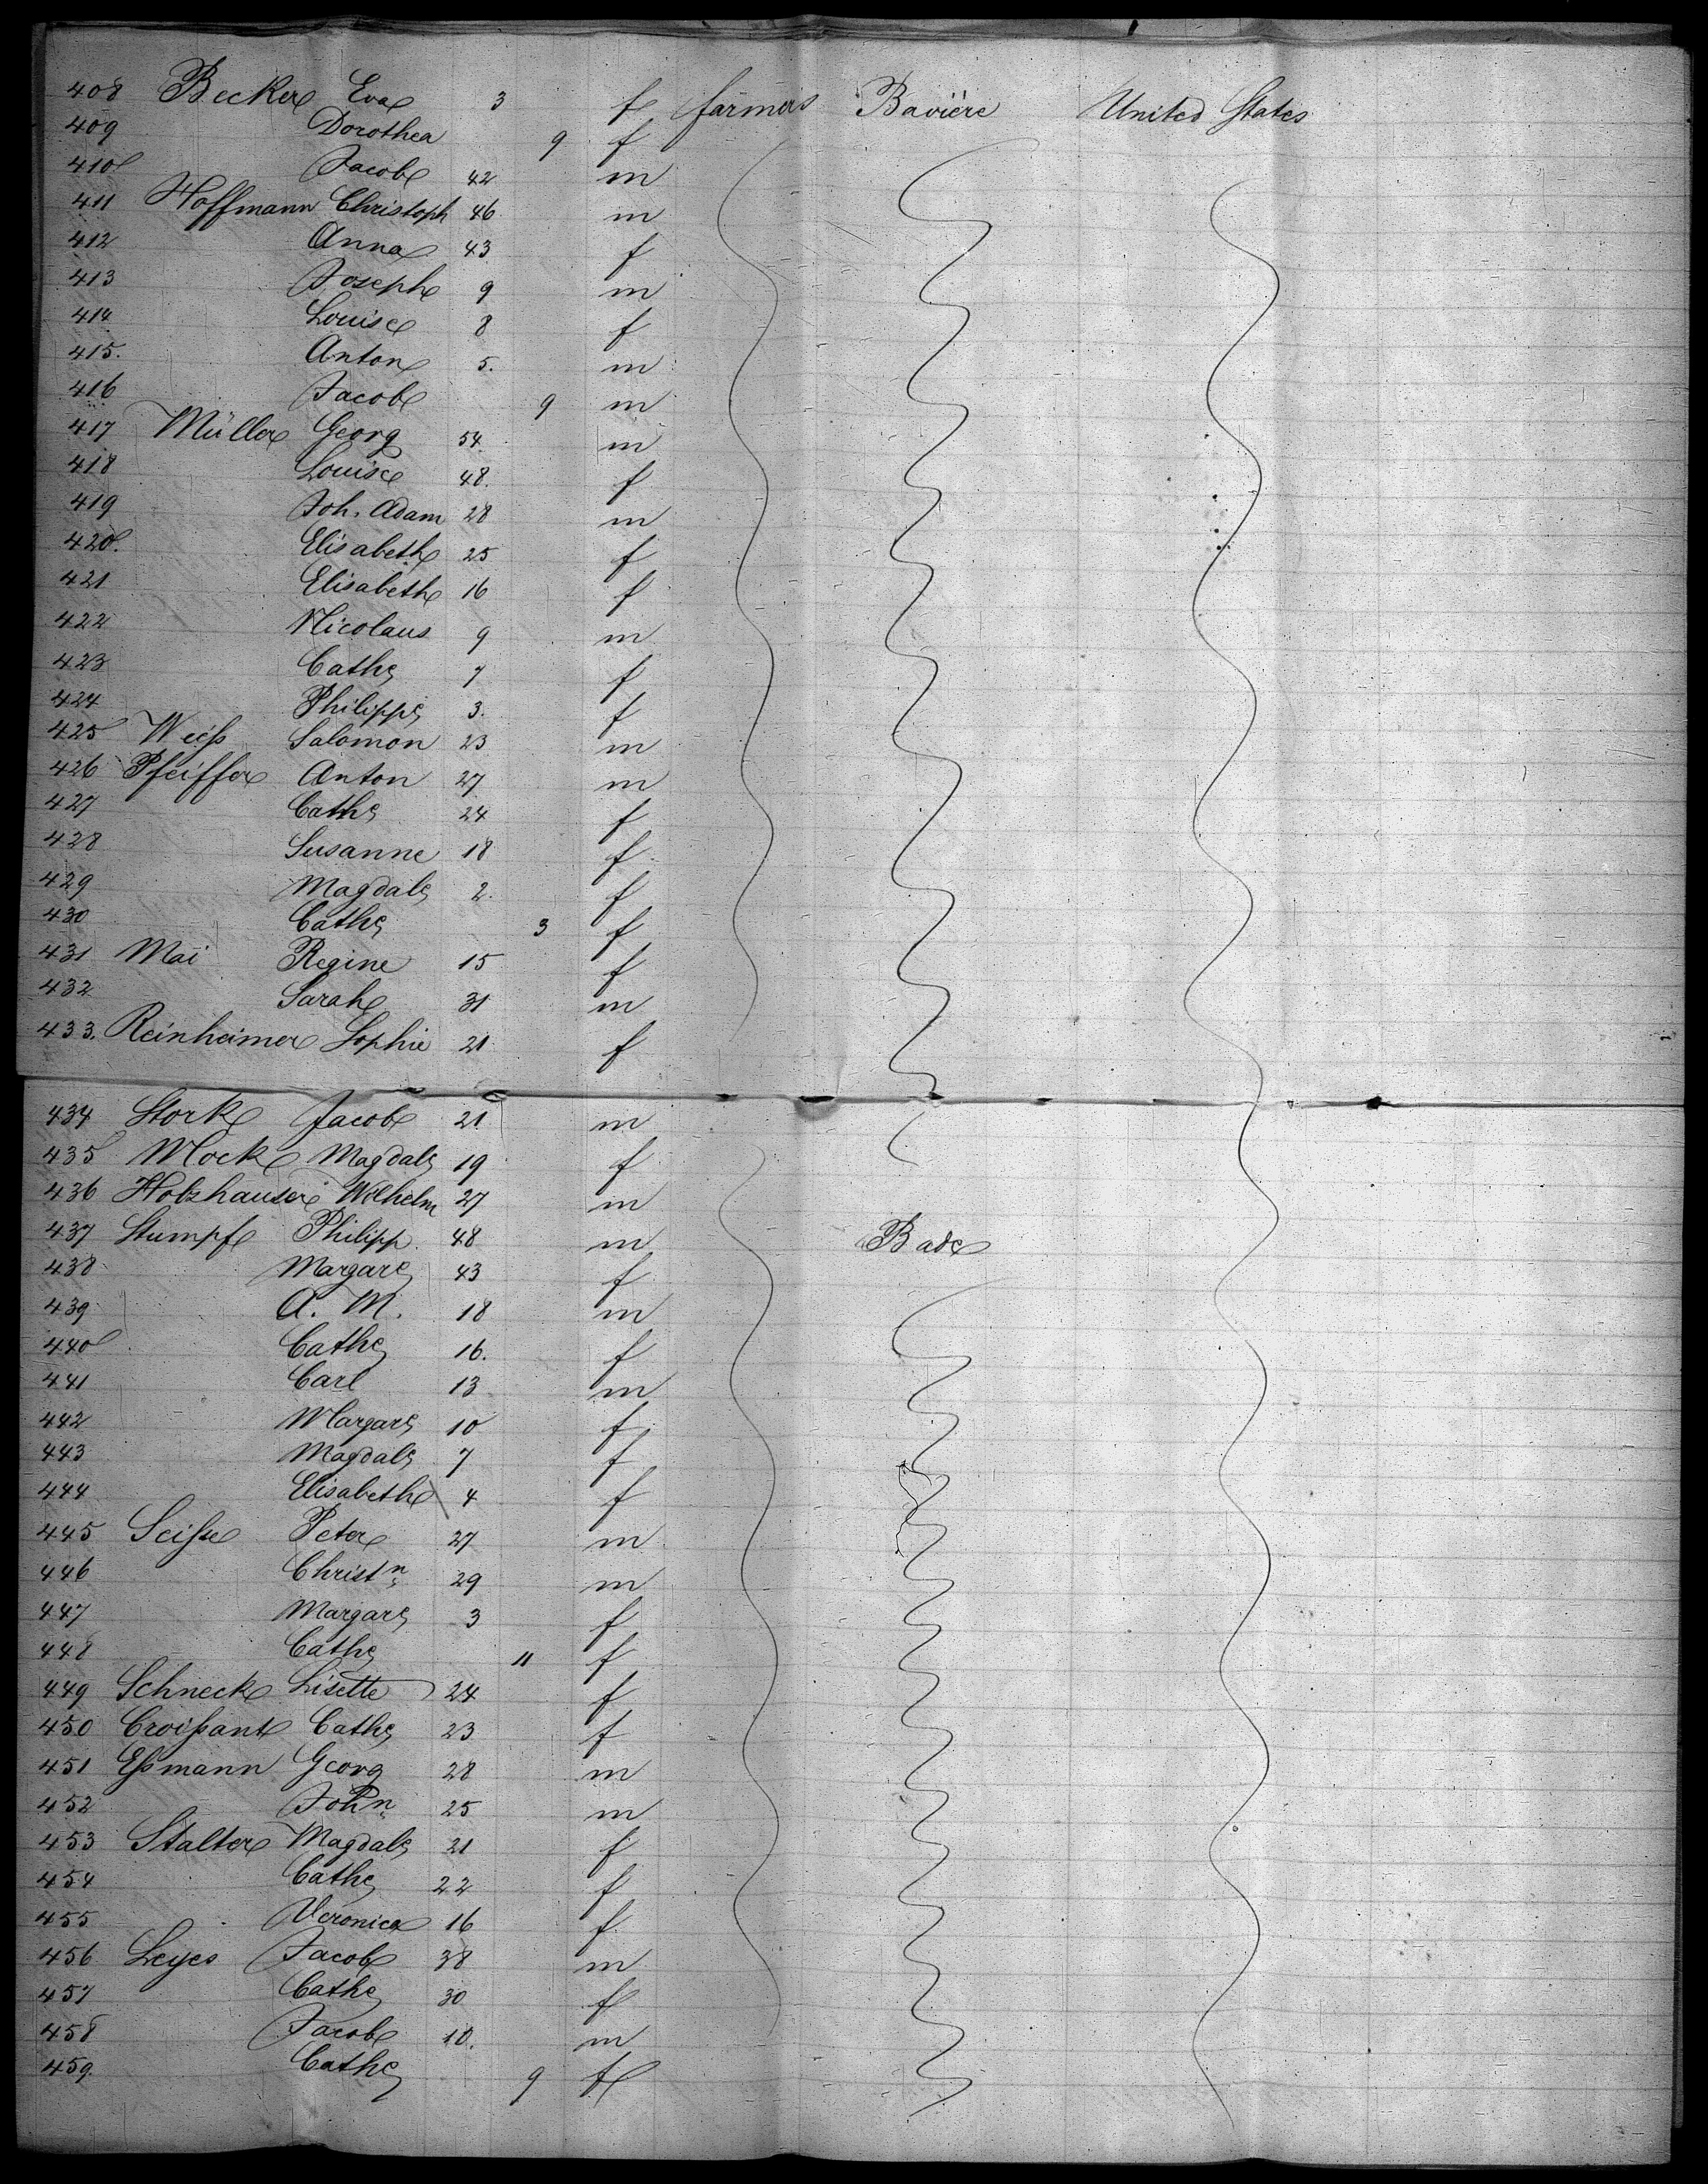 408 Becker Eva 3 f farmers Bavière United States
409 Dorothea 9 f
410 Jacob 42 m
411 Hoffmann Christoph 46 m
412 Anna 43 f
413 Joseph 9 m
414 Louise 8 f
415. Anton 5. m
416 Jacob 9 m
417 Müller Georg 54 m
418 Louise 48. f
419 Joh. Adam 28 m
420. Elisabeth 25 f
421 Elisabeth 16 f
422 Nicolaus 9 m
423 Cathe 7 f
424 Philippe 3. f
425 Weiß Salomon 23 m
426 Pfeiffer Anton 27 m
427 Cathe 24 f
428 Susanne 18 f
429 Magdale 2. f
430 Cathe 3 f
431 Mai Regine 15 f
432 Sarah 31 m
433. Reinheimer Sophie 21 f
434 Stork Jacob 21 m
435 Mock Magdale 19 f
436 Holzhauser Wilhelm 27 m
437 Stumpf Philipp 48 m Bade
438 Margare 43 f
439 A. M. 18 m
440 Cathe 16. f
441 Carl 13 m
442 Margare 10 f
443 Magdale 7 f
444 Elisabeth 4 f
445 Seißer Peter 27 m
446 Christn 29 m
447 Margare 3 f
448 Cathe 11 f
449 Schneck Lisette 24 f
450 Croißant Cathe 23 f
451 Eßmann Georg 28 m
452 John 25 m
453 Stalter Magdale 21 f
454 Cathe 22 f
455 Veronica 16 f
456 Leyes Jacob 38 m
457 Cathe 30 f
458 Jacob 10. m
459. Cathe 9 f